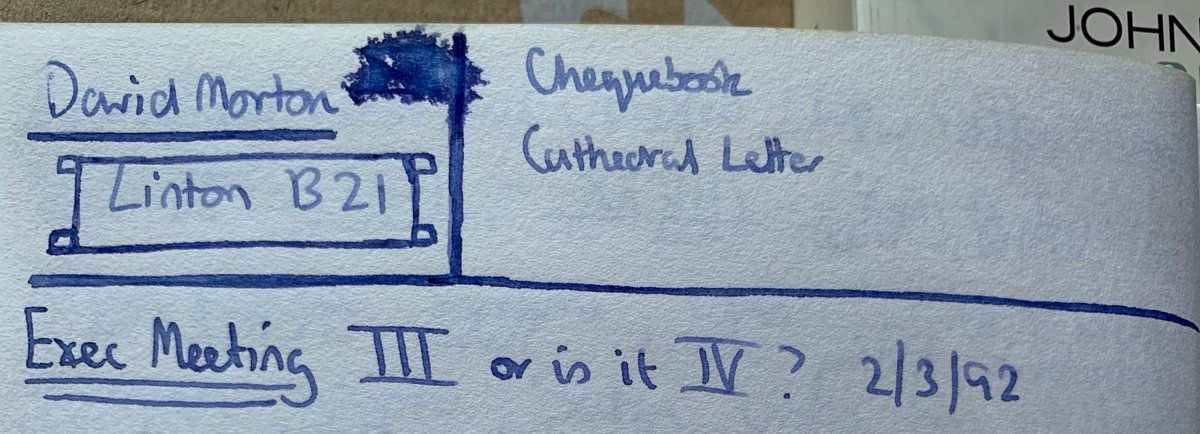 JOHN
David Morton
Linton B21
Chequebook
Cathedral Letter
Exec Meeting III or is it IV? 2/3/92